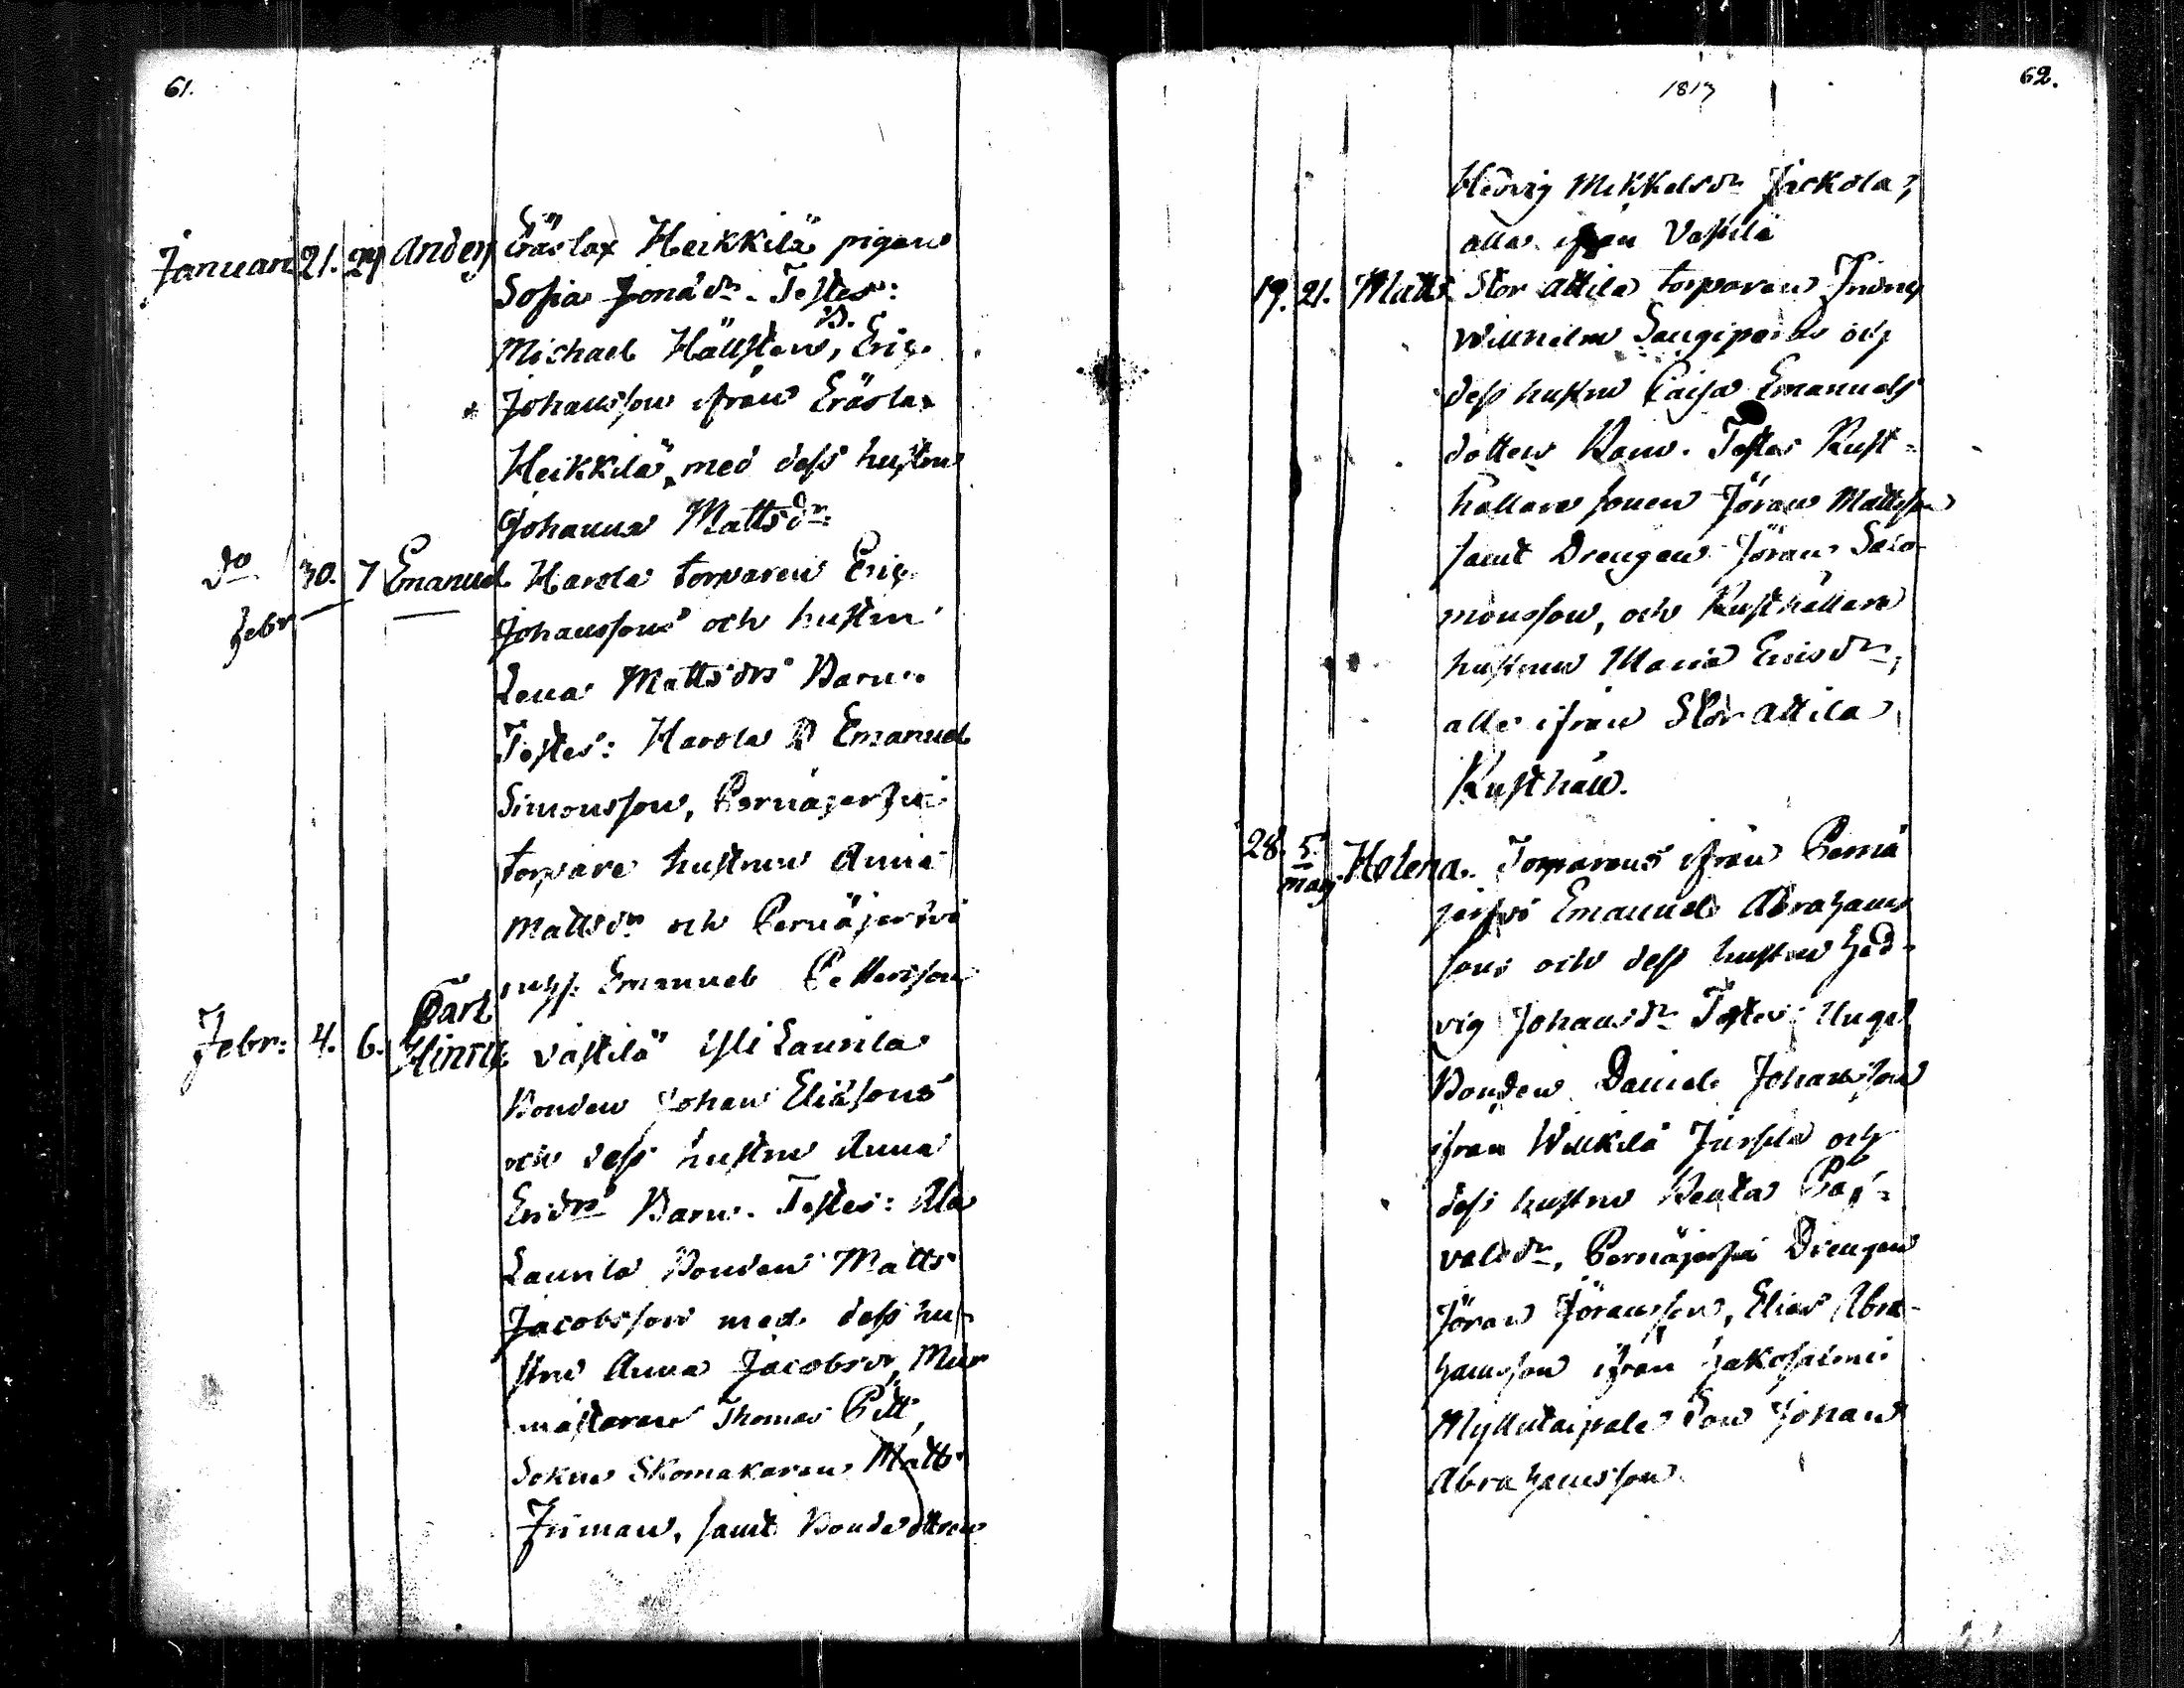 61.
Januari 21. 24 Anders Eräslax Heikkilä pigans
Sofia Jonä dr. Testes:
B.
Michael Hällsten, Eric
Johansson ifrån Eräslax
Heikkilä, med dess hustru
Johanna Matts dr.
do 30. 7 Emanuel Harola torparen Eric
Febr
Johanssons och hustru
Lena Matts drs Barn.
Testes: Harola B Emanuel
Simonsson, Pernäjerfvi
torpare hustrun Anna
Mattsdr och Pernäjerfvi
Emanuel Pettersson
Carl
Febr: 4. 6. Hinric Västilä Yli Laurila
Bonden Johan Elissons
och dess hustru Anna
Ericdrs Barn. Testes: Ala
Laurila Bonden Matts
Jacobsson med dess hu-
stru Anna Jacobsdr, Mur
mästaren Thomas
Sokne Skomakaren Matts
Friman, samt Bonde dttren
1817
62.
Hedvig Mikkelsdr Jackola,
alla ifrån Västilä
19. 21. Matts Stor Attila torparen
Willhelm och
dess hustru Caisa Emanuels
dotters Barn. Testes Rust-
hållare sonen Jöran Mattsson
samt Drengen Jöran Salo-
monsson, och Rusthållare
hustrun Maria Ericsdr,
alle ifrån Stor Attila
Rusthåll.
28. 5. Helena. Torparens ifrån Pernä
Marty
jerfvi Emanuel Abraham
sons och dess hustru Hed-
vig Johansdr Testes: Unga
Bonden Daniel Johansson
ifrån Willkilä Jussila och
dess hustru Beata
valsdr, Pernäjerfvi Drengen
Jöran Jöransson, Elias Abra-
hamsson ifrån Hakosalmi
Myllutaipale Son Johan
Abrahamsson